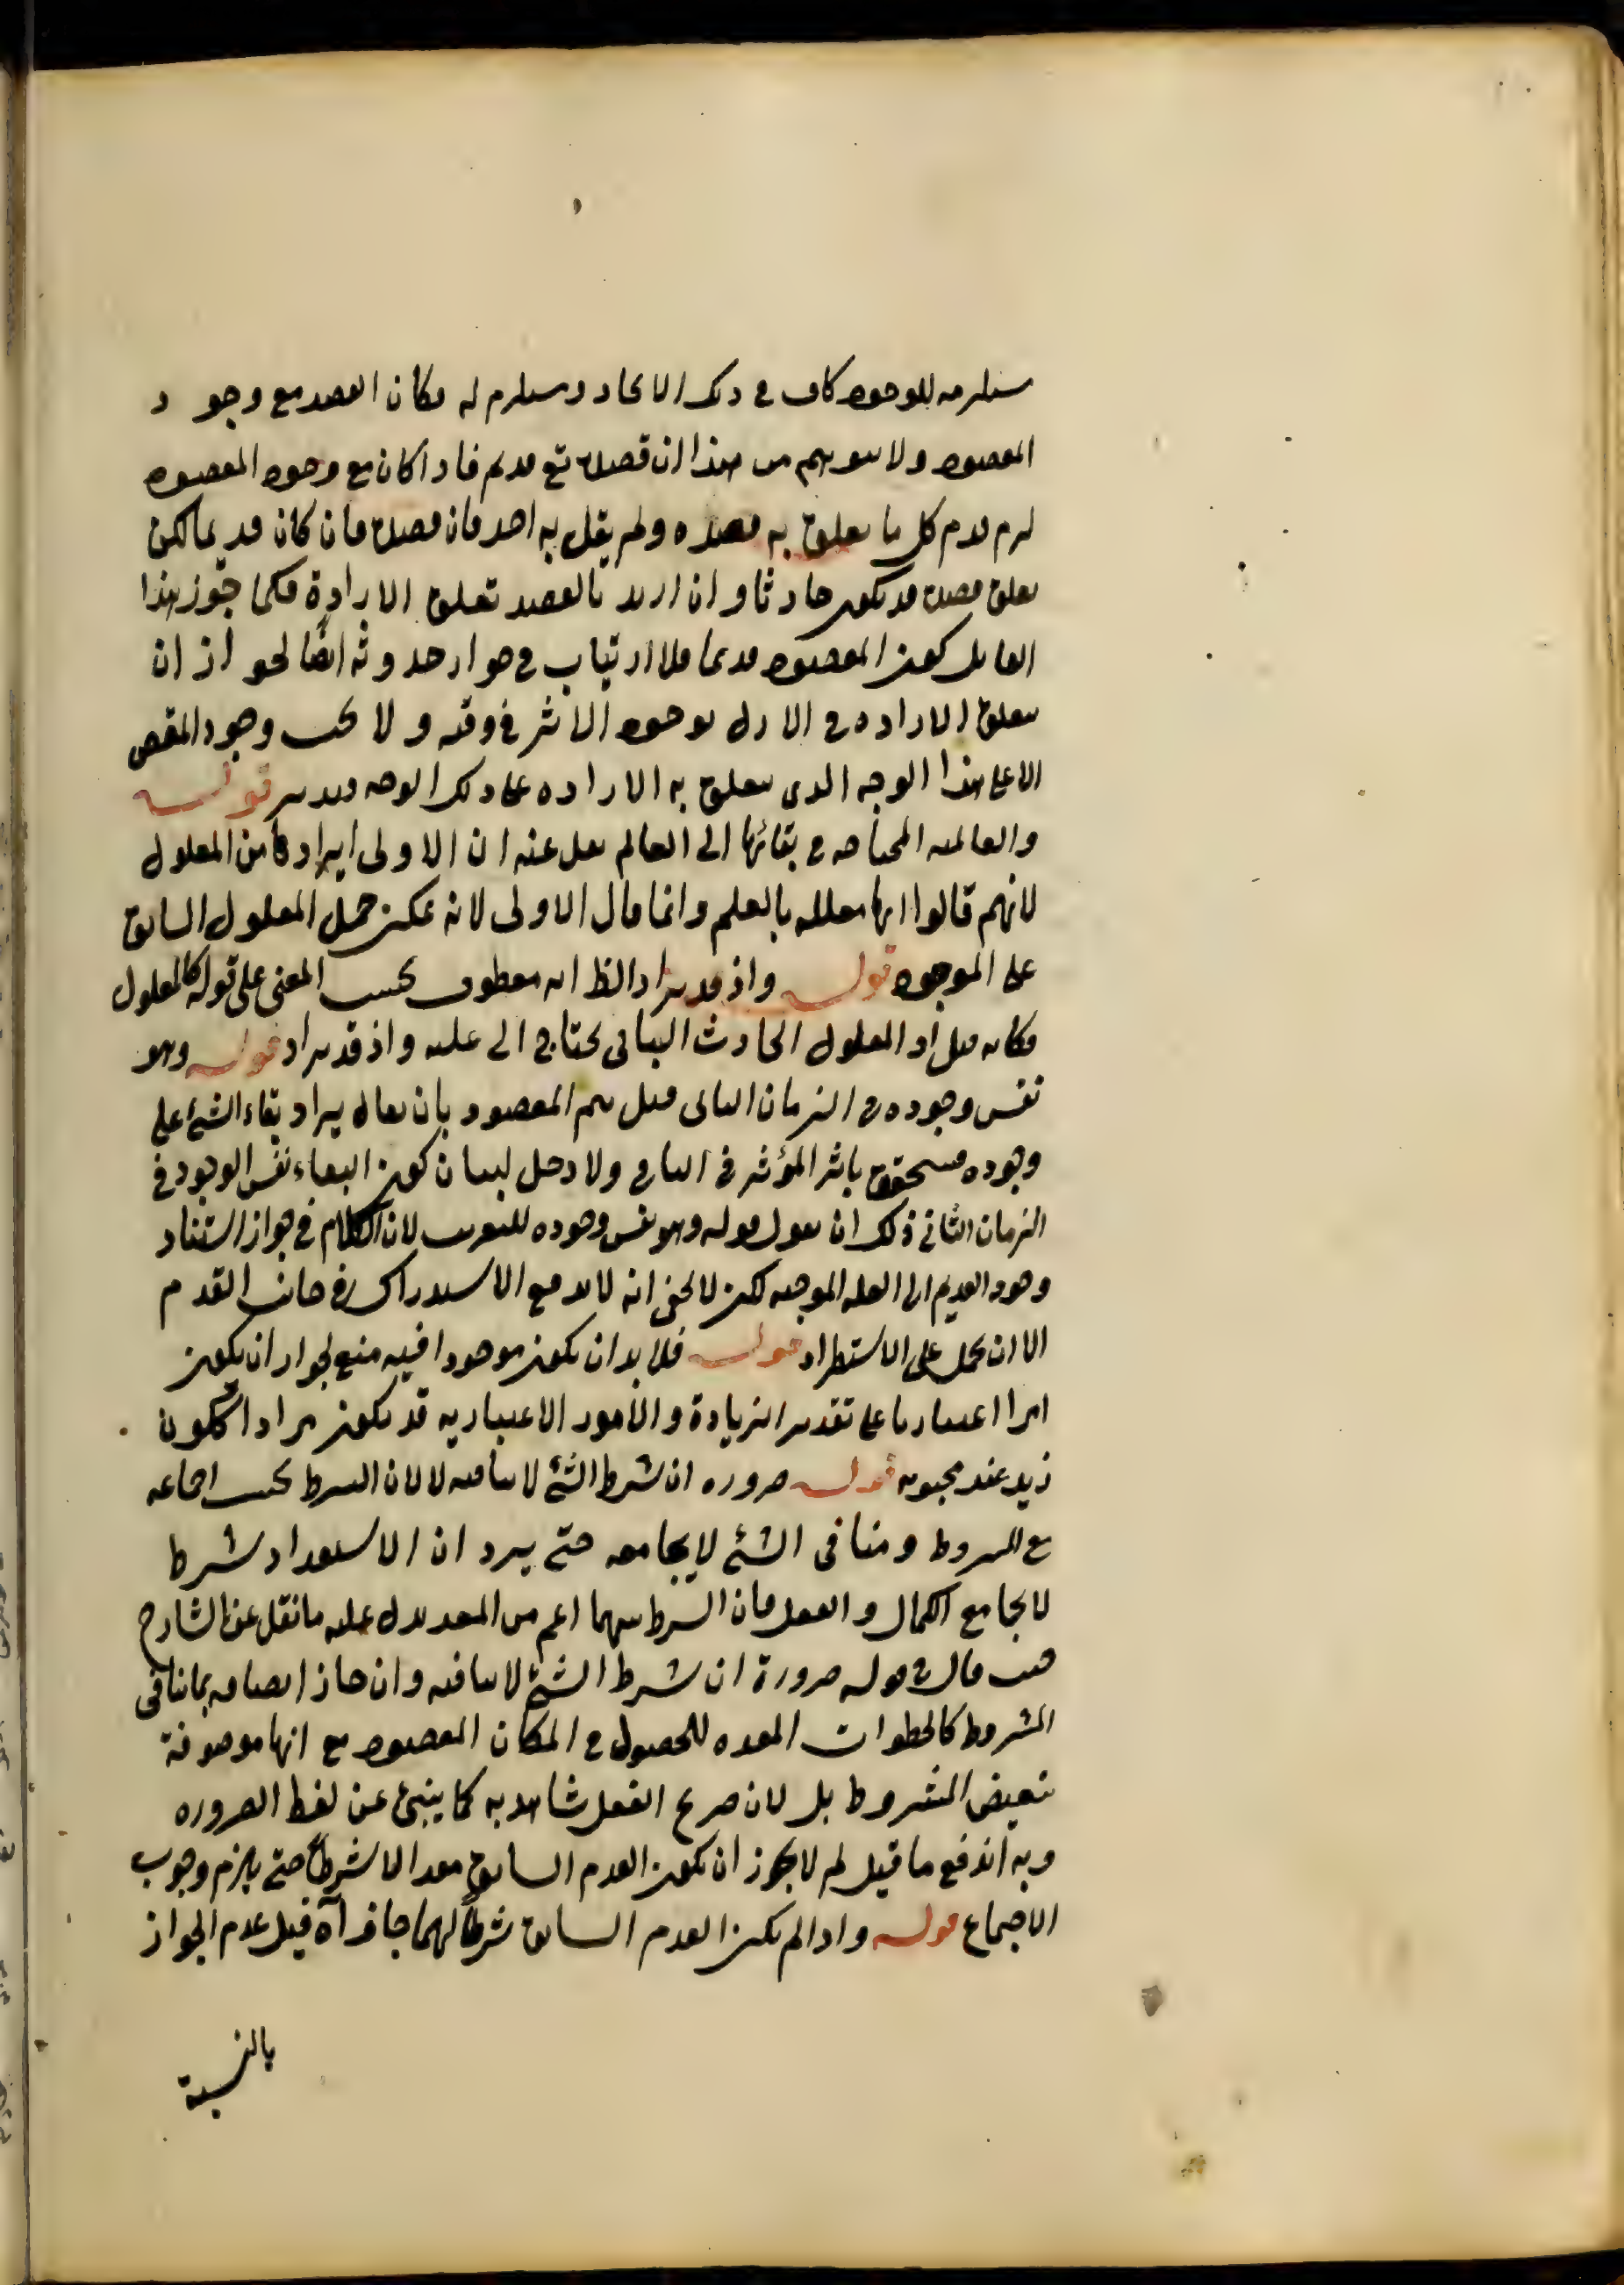 مستلزمه للوجود كاف في ذلك الايجاد ومستلزم له فكان القصد مع وجود
المقصود ولا يتوهم من هذا ان قصده تع قديم فاذا كان مع وجود المقصود
لزم قدم كل ما يتعلق به قصده ولم يقل به احد فان قصده فان كان قديما لكن
تعلق قصده قد يكون حادثا وان اريد بالقصد تعلق الارادة فكما جوز هذا
القايل كون المقصود قديما فلا ارتياب في جواز حدوثه ايضا لجواز ان
يتعلق الاراده في الازل بوجود الاثر في وقته ولا يجب وجود المقصد
الا على هذا الوجه الذى يتعلق به الاراده على ذلك الوجه فتدبر قوله
والعالميه المحتاجه في بقائها الى العالم نقل عنه ان الاولى ايرادها من المعلول
لانهم قالوا انها معلله بالعلم وانما قال الاولى لانه يمكن حمل المعلول السابق
على الموجود قوله واذ قد يراد الظ انه معطوف بحسب المعنى على قوله كالمعلول
فكانه قيل اذ المعلول الحادث الباقى يحتاج الى علته واذ قد يراد قوله وهو
نفس وجوده في الزمان الثانى قيل يتم المقصود بان يقال يراد بقاء الشئ على
وجوده فيتحقق باثر المؤثر في الباقى ولا دخل لبيان كون البقاء نفس الوجود في
الزمان الثانى ذلك ان تقول قوله وهو نفس وجوده للتعريف لان الكلام في جواز استناد
وجود القديم الى العلة الموجبه لكن لا يخفى انه لا يدفع الاستدراك في جانب القدم
الا ان يحمل على الاستطراد قوله فلا بد ان يكون موجودا فيه منع لجواز ان يكون
امرا اعتباريا على تقدير الزيادة والامور الاعتباريه قد يكون مرادا ككون
زيد عند محبوبه قوله ضروره ان شرط الشئ لا ينافيه لا لان الشرط يجب اجتماعه
مع المشروط ومنافى الشئ لا يجامعه حتى يرد ان الاستعداد شرط
لا يجامع الكمال والفعل فان الشرط ههنا اعم من المعد يدل عليه ما نقل عن الشارح
حيث قال في قوله ضرورة ان شرط الشئ لا ينافيه وان جاز اتصافه بما ينافى
المشروط كالخطوات المعده للحصول في المكان المقصود مع انها موصوفة
بنقيض المشروط بل لان صريح العقل شاهد به كما ينبئ عن لفظ الضروره
وبه اندفع ما قيل لم لا يجوز ان يكون العدم السابق معدا لا شرطا حتى يلزم وجوب
الاجتماع قوله واذا لم يكن العدم السابق شرطا لهما جاز آه قيل عدم الجواز
بالنسبة